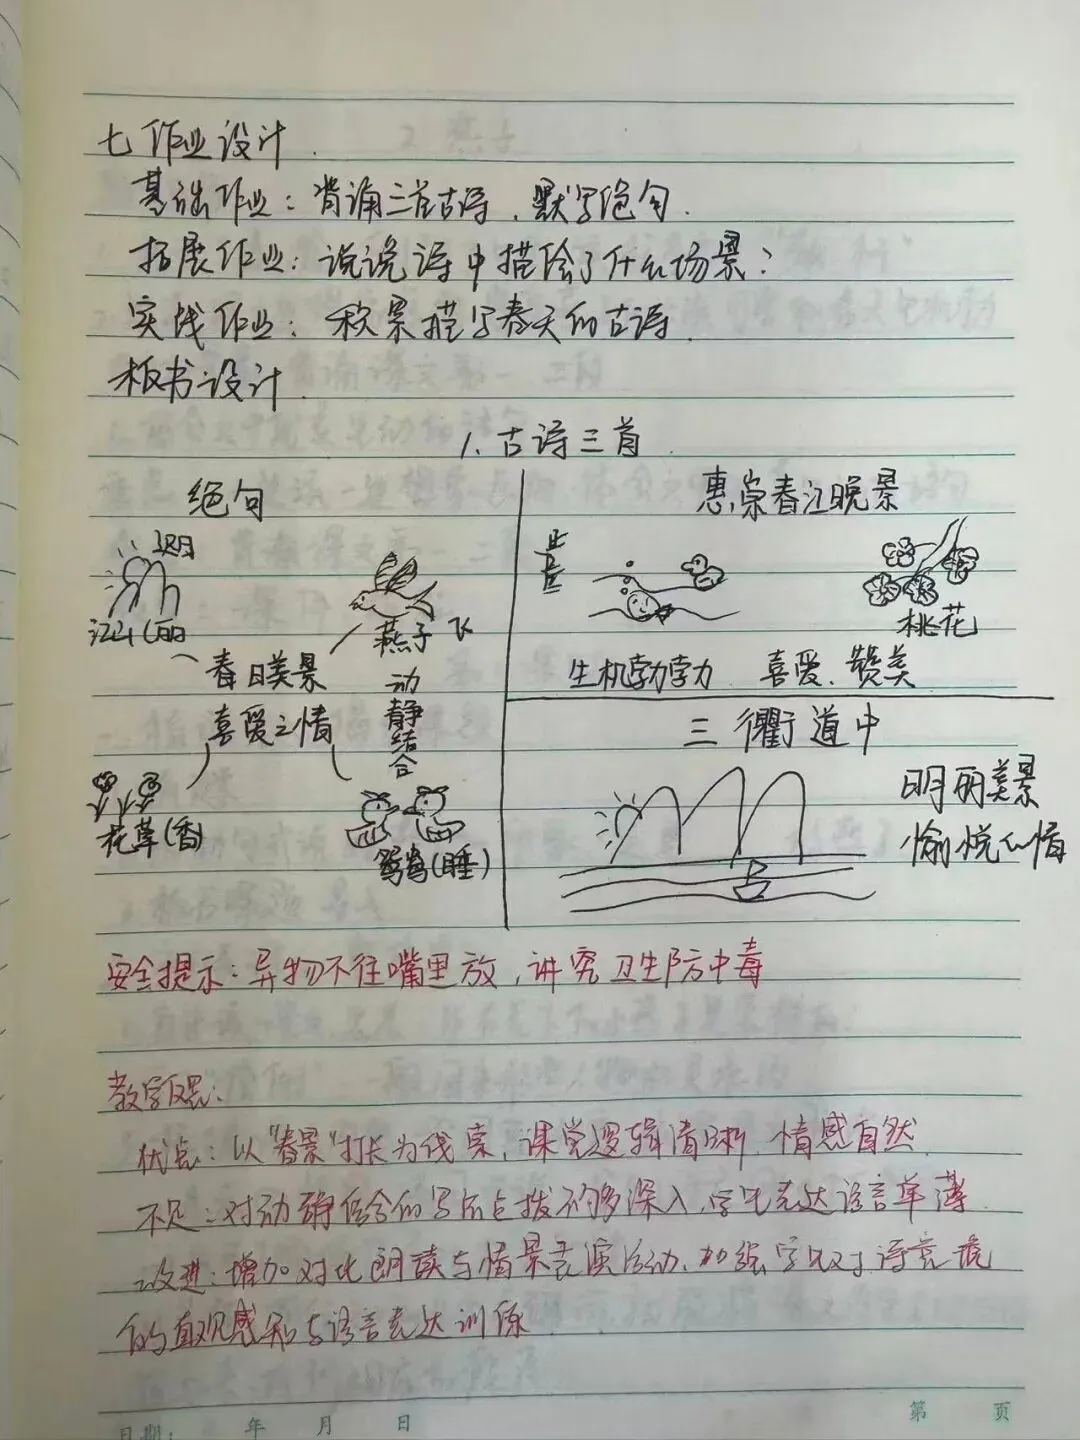 七 作业设计.
基础作业：背诵三首古诗、默写绝句.
拓展作业：说说诗中描绘了什么场景？
实践作业：积累描写春天的古诗.
板书设计.
1. 古诗三首
绝句
迟日
江山(丽)
燕子 飞
春日美景
喜爱之情
动静结合
花草(香)
鸳鸯(睡)
惠崇春江晚景
桃花
生机勃勃 喜爱、赞美
三衢道中
明丽美景
愉悦心情
安全提示：异物不往嘴里放，讲究卫生防中毒
教学反思：
优点：以"春景"打为线索，课堂逻辑清晰，情感自然.
不足：对动静结合的写点拨不够深入，学生表达语言单薄.
改进：增加对比朗读与情景表演活动、加强学生对诗意境
的直观感知与语言表达训练.
日期： 年 月 日
第 页